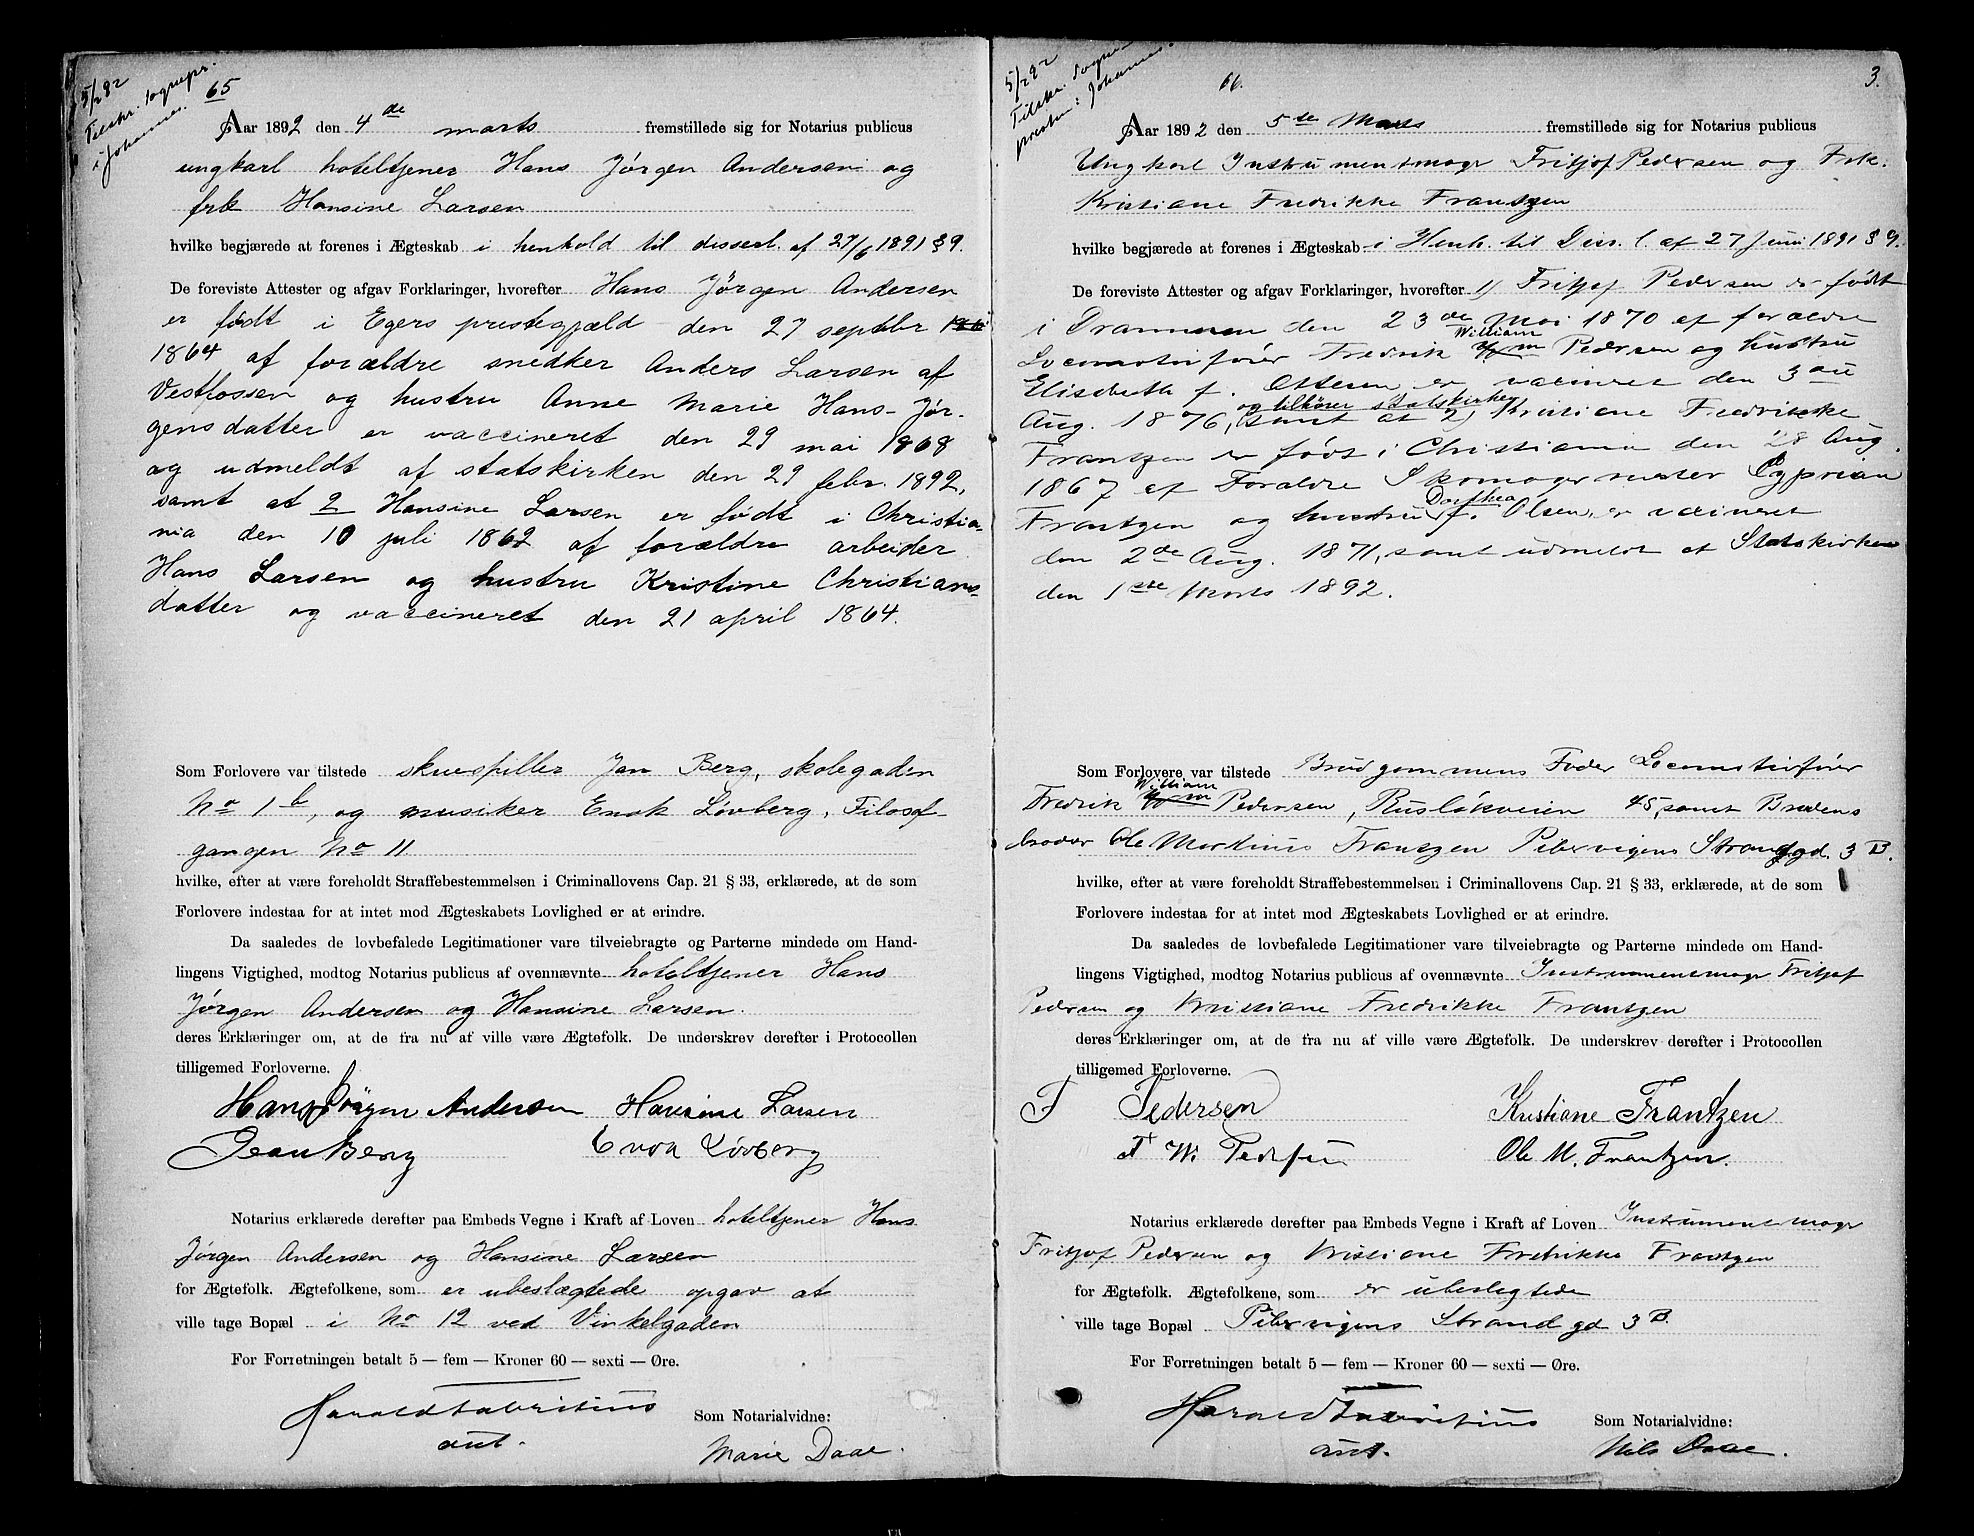 5/3 92
Tilskr. sognepr.
i Johannes.
65
Aar 1892 den 4de marts fremstillede sig for Notarius publicus
ungkarl hoteltjener Hans Jørgen Andersen og
frk Hansine Larsen
hvilke begjærede at forenes i Ægteskab i henhold til disserl. af 27/6 1891 § 9.
De foreviste Attester og afgav Forklaringer, hvorefter Hans Jørgen Andersen
er født i Egers prestegjæld den 27 septbr
1864 af forældre snedker Anders Larsen af
Vestfossen og hustru Anne Marie Hans-Jør-
gensdatter er vaccineret den 29 mai 1868
og udmeldt af statskirken den 29 febr. 1892,
samt at 2 Hansine Larsen er født i Christia-
nia den 10 juli 1862 af forældre arbeider
Hans Larsen og hustru Kristine Christians-
datter og vaccineret den 21 april 1864.
Som Forlovere var tilstede skuespiller Jan Berg, skolegaden
No 1 b, og musiker Enok Løvberg, Filosof-
gangen No 11
hvilke, efter at være foreholdt Straffebestemmelsen i Criminallovens Cap. 21 § 33, erklærede, at de som
Forlovere indestaa for at intet mod Ægteskabets Lovlighed er at erindre.
Da saaledes de lovbefalede Legitimationer vare tilveiebragte og Parterne mindede om Hand-
lingens Vigtighed, modtog Notarius publicus af ovennævnte hoteltjener Hans
Jørgen Andersen og Hansine Larsen.
deres Erklæringer om, at de fra nu af ville være Ægtefolk. De underskrev derefter i Protocollen
tilligemed Forloverne.
Hans Jörgen Andersen Hansine Larsen
Jean Berg Enok Lövberg
Notarius erklærede derefter paa Embeds Vegne i Kraft af Loven hoteltjener Hans
Jørgen Andersen og Hansine Larsen
for Ægtefolk. Ægtefolkene, som er ubeslægtede opgav at
ville tage Bopæl i No 12 ved Vinkelgaden
For Forretningen betalt 5 — fem — Kroner 60 — sexti — Øre.
Harald Fabritius
aut.
Som Notarialvidne:
Marie Daae.
5/3 92
Tilskr. Sogne-
presten i Johannes.
66.
3.
Aar 1892 den 5te Marts fremstillede sig for Notarius publicus
Ungkarl Instrumentmagr Fritjof Pedersen og Frk.
Kristiane Fredrikke Frantzen
hvilke begjærede at forenes i Ægteskab i Henh. til Diss. l. af 27 Juni 1891 § 9.
De foreviste Attester og afgav Forklaringer, hvorefter 1) Fritjof Pedersen er født
i Drammen den 23de Mai 1870 af forældre
Locomotivfører Fredrik William Pedersen og hustru
Elisabeth f. Ottesen er vacineret den 3die
Aug. 1876, og tilhører statskirken samt at 2) Kristiane Fredrikke
Frantzen er født i Christiania den 28 Aug.
1867 af Forældre Skomagermester Cyprian
Frantzen og hustru Dorthea f. Olsen, er vacineret
den 2de Aug. 1871, samt udmeldt af Statskirken
den 1ste Marts 1892.
Som Forlovere var tilstede Brudgommens Fader Locomotivfører
Fredrik William Pedersen, Rusløkveien 45, samt Brudens
broder Ole Martinus Frantzen Pibervigens Strandgd. 3 B.
hvilke, efter at være foreholdt Straffebestemmelsen i Criminallovens Cap. 21 § 33, erklærede, at de som
Forlovere indestaa for at intet mod Ægteskabets Lovlighed er at erindre.
Da saaledes de lovbefalede Legitimationer vare tilveiebragte og Parterne mindede om Hand-
lingens Vigtighed, modtog Notarius publicus af ovennævnte Instrumentmagr Fritjof
Pedersen og Kristiane Fredrikke Frantzen
deres Erklæringer om, at de fra nu af ville være Ægtefolk. De underskrev derefter i Protocollen
tilligemed Forloverne.
F Pedersen Kristiane Frantzen
F W. Pedersen Ole M. Frantzen.
Notarius erklærede derefter paa Embeds Vegne i Kraft af Loven Instrumentmagr
Fritjof Pedersen og Kristiane Fredrikke Frantzen
for Ægtefolk. Ægtefolkene, som er ubeslegtede
ville tage Bopæl Pibervigens Strandgd 3 B.
For Forretningen betalt 5 — fem — Kroner 60 — sexti — Øre.
Harald Fabritius
aut.
Som Notarialvidne:
Nils Daae.